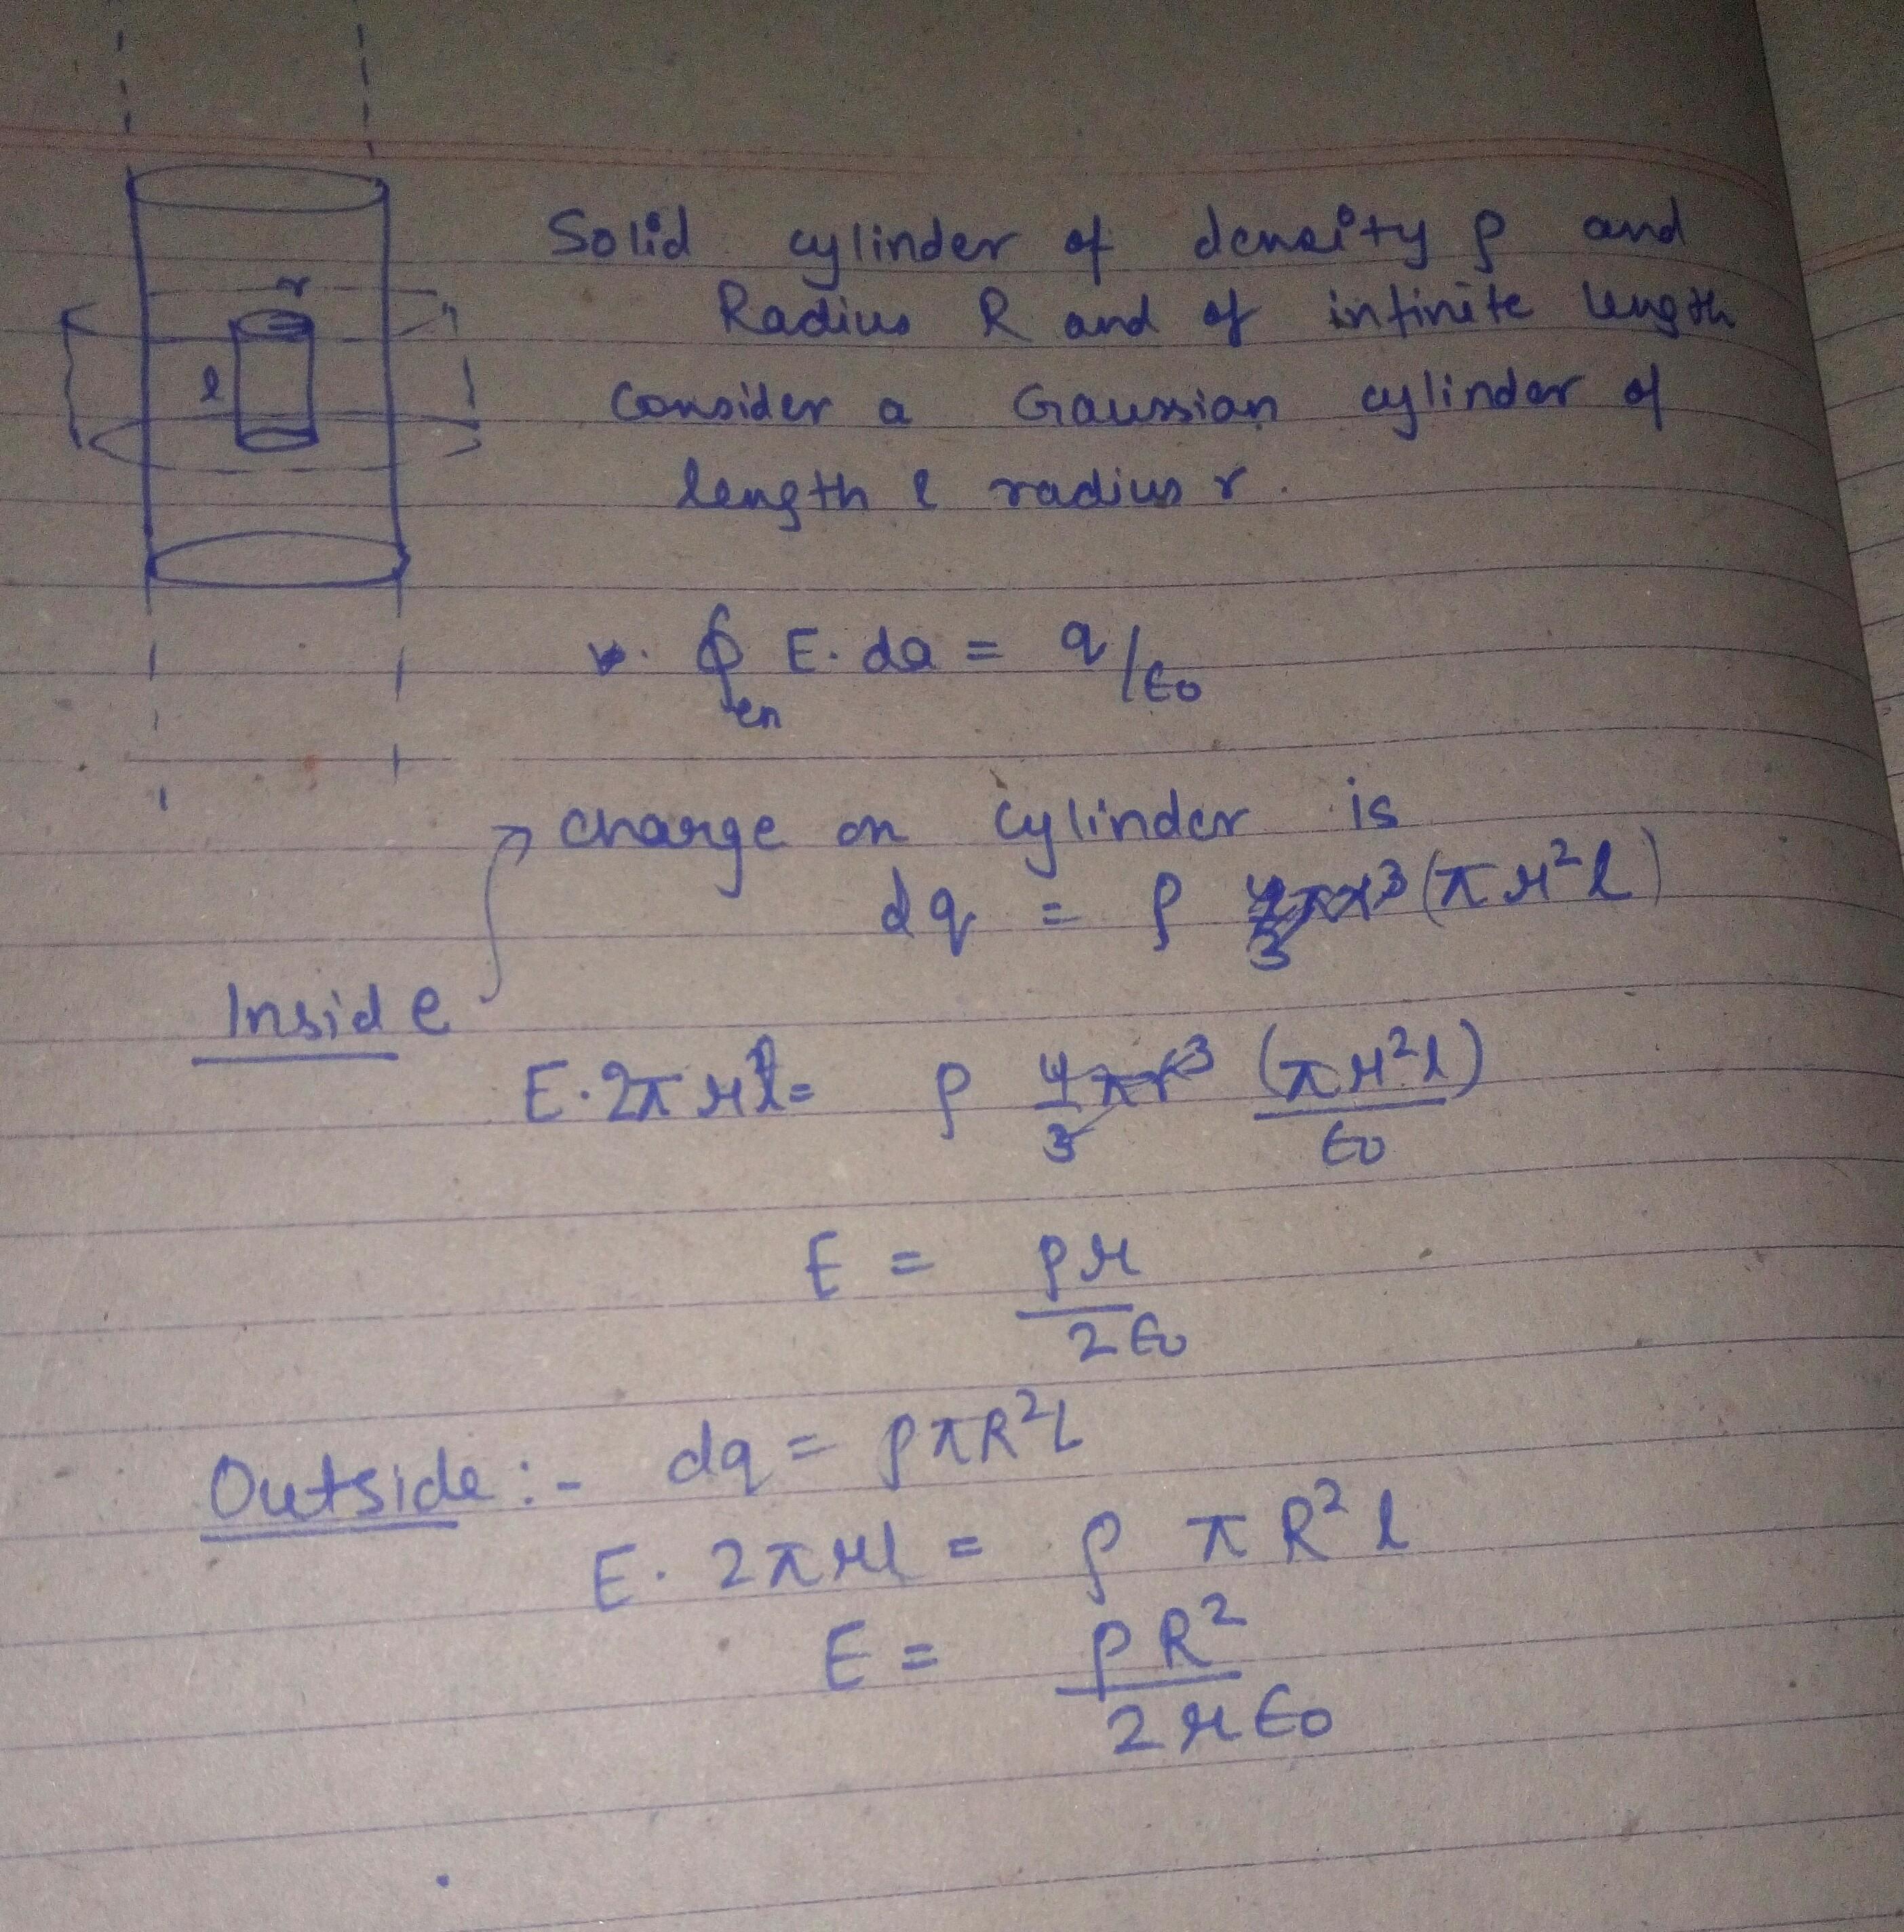 Solid cylinder of density ρ and
Radius R and of infinite length
r
l
Consider a Gaussian cylinder of
length l radius r.
∮ E. da = q/ε0
en
charge on cylinder is
dq = ρ (πr²l)
Inside
E·2πrl = ρ (πr²l)/ε0
E = ρr/2ε0
Outside :- dq = ρπR²l
E. 2πrl = ρ πR²l
E = ρR²/2rε0